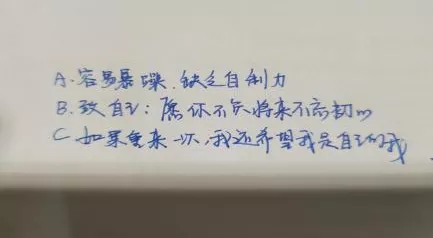 A.容易暴躁.缺乏自制力
B.致自己:愿你不负将来不忘初心
C 如果重来一次,我还希望我是自己的我